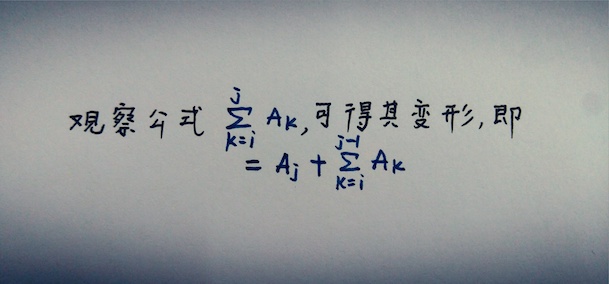 观察公式 $\sum_{k=i}^{j} A_k$,可得其变形,即
$= A_j + \sum_{k=i}^{j-1} A_k$